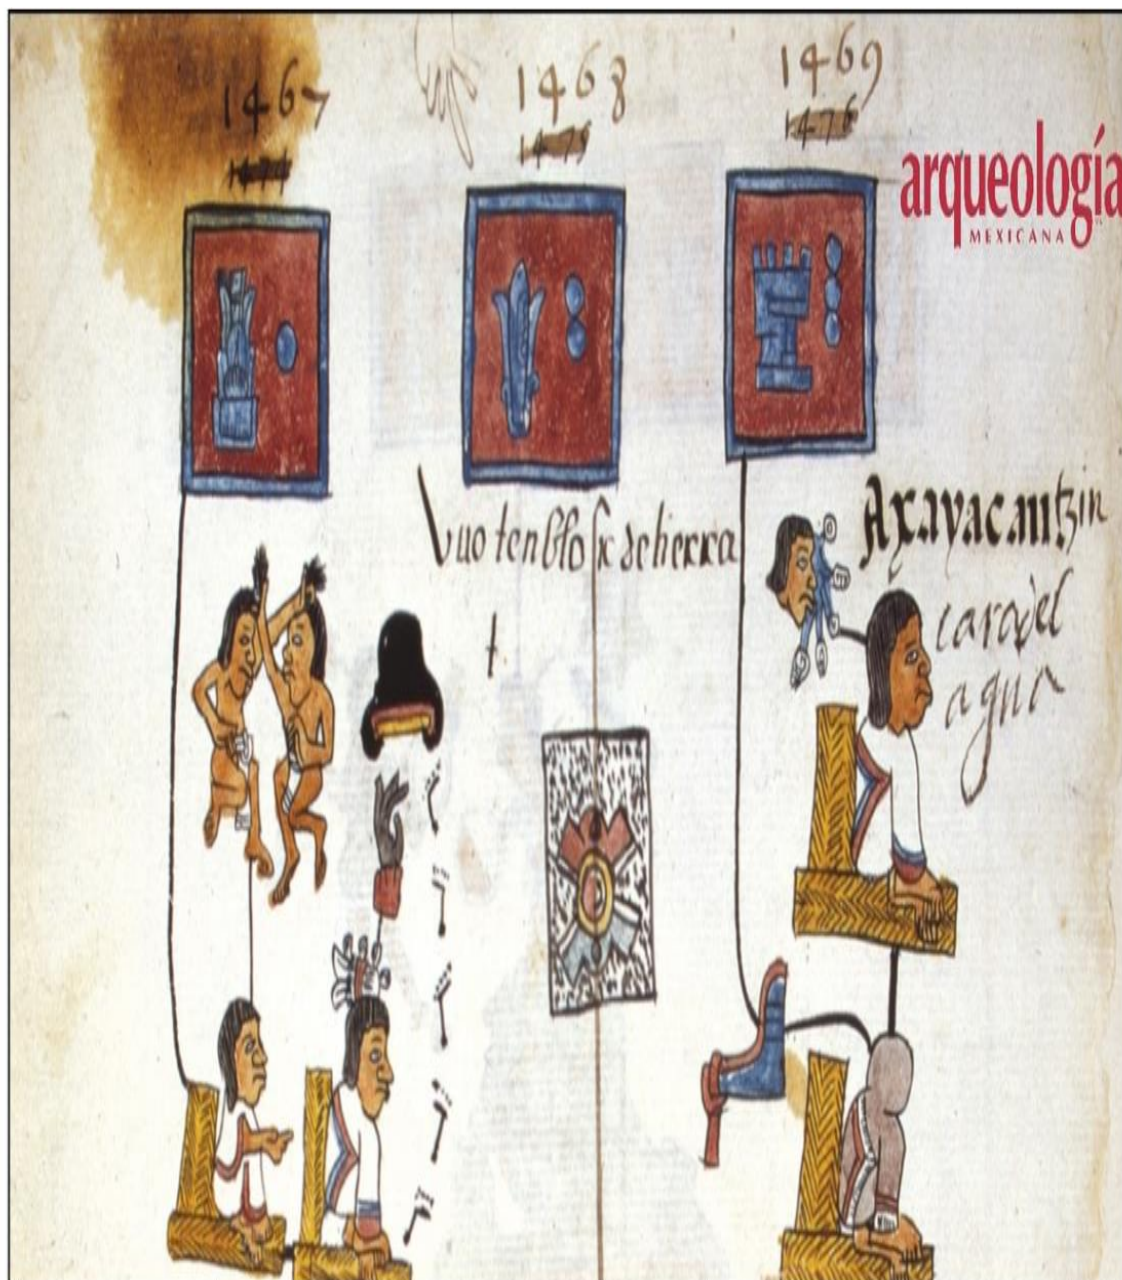 1467
1468
1469
1475
1476
arqueología
MEXICANA
huo tenblor de tierra
Axayacatzin
cara del
agua